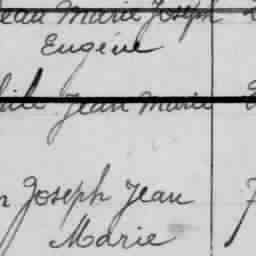 Jean Marie Joseph
Eugène
Jean Marie
Joseph Jean
Marie